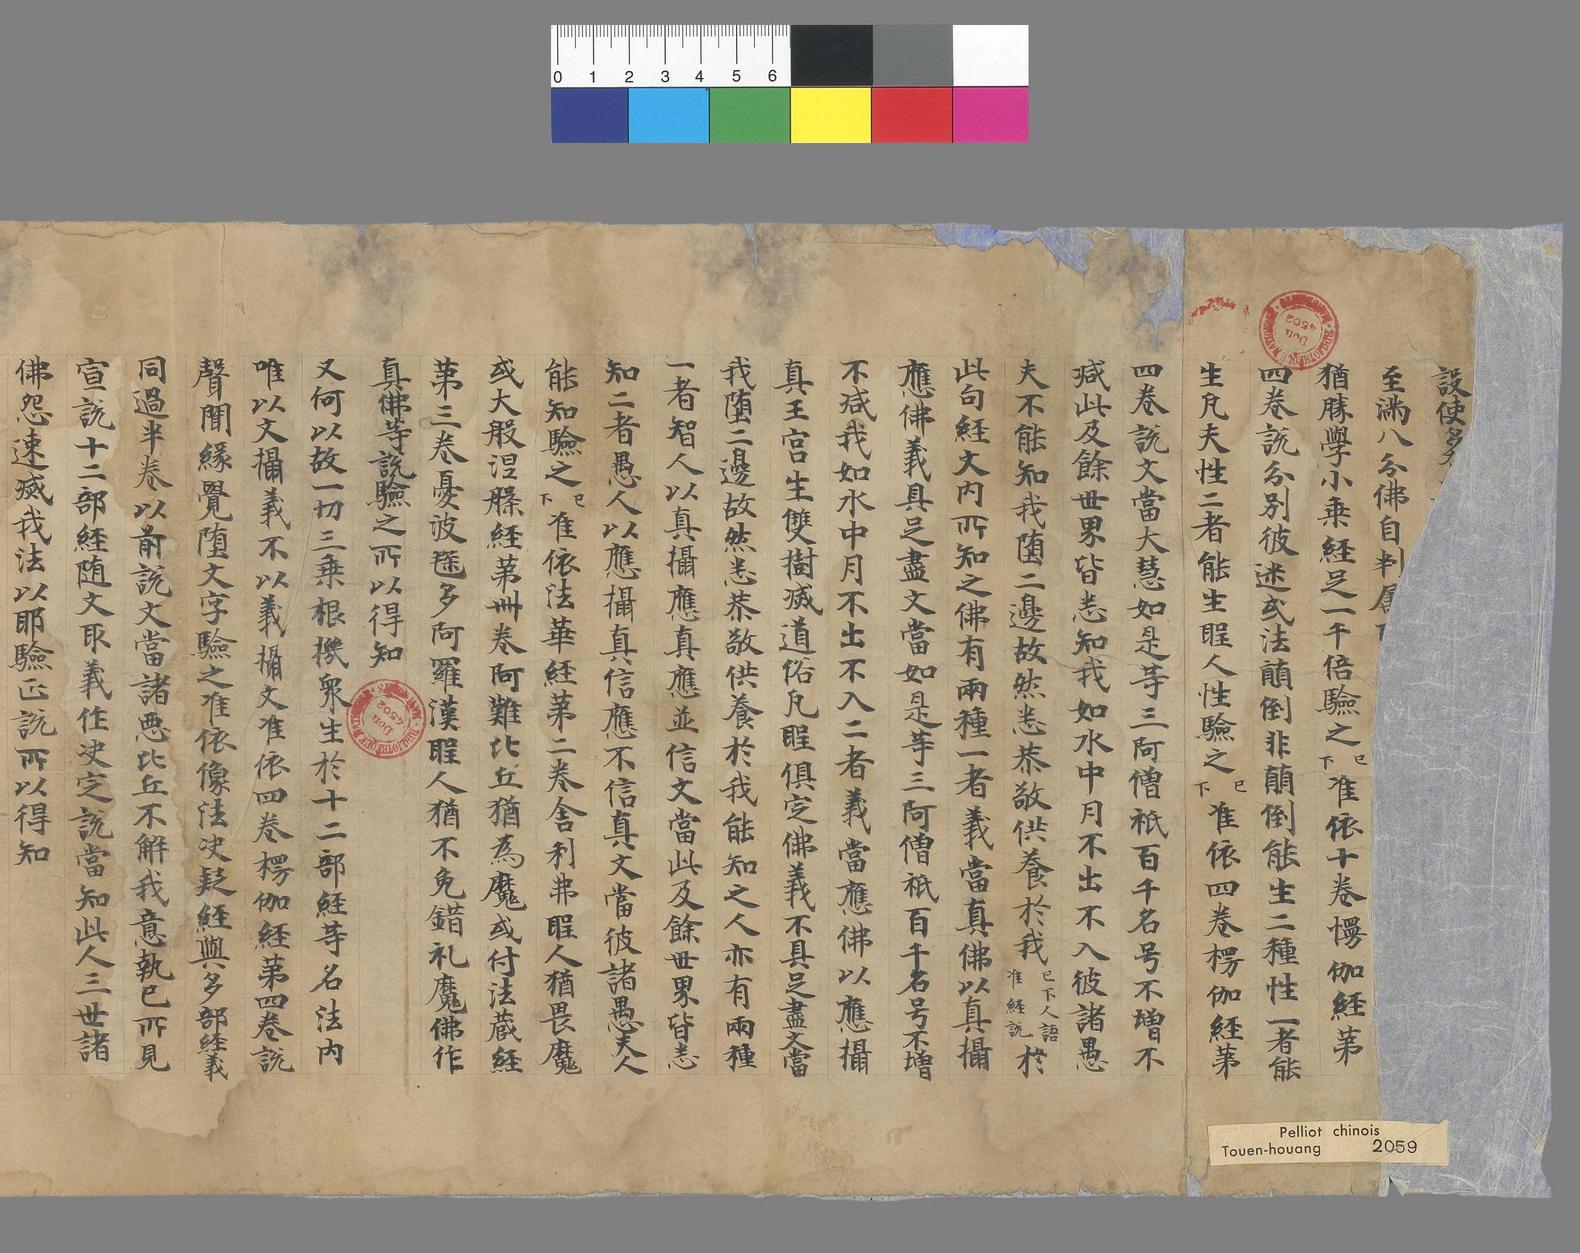 設使多
至滿八分佛自判屬
猶勝學小乗經足一千倍驗之已下准依十卷愣伽經第
四卷說分別彼迷或法顛倒非顛倒能生二種性一者能
生凡夫性二者能生聖人性驗之已下准依四卷楞伽經苐
四卷說文當大慧如是等三阿僧祇百千名号不增不
減此及餘世界皆悉知我如水中月不出不入彼諸愚
夫不能知我墮二邊故然悉恭敬供養於我已下人語准經說於
此句經文內所知之佛有兩種一者義當真佛以真攝
應佛義具足盡文當如是等三阿僧祇百千名号不增
不減我如水中月不出不入二者義當應佛以應攝
真王宮生雙樹滅道俗凡聖俱定佛義不具足盡文當
我墮二邊故然悉恭敬供養於我能知之人亦有兩種
一者智人以真攝應真應並信文當此及餘世界皆悉
知二者愚人以應攝真信應不信真文當彼諸愚夫人
能知驗之已下准依法華經第二卷舎利弗聖人猶畏魔
或大般涅槃經苐卌卷阿難比丘猶為魔或付法藏經
苐三卷憂波毱多阿羅漢聖人猶不免錯礼魔佛作
真佛等說驗之所以得知
又何以故一切三乗根機衆生於十二部經等名法內
唯以文攝義不以義攝文准依四卷楞伽經苐四卷說
聲聞緣覺墮文字驗之准依像法决疑經與多部經義
同過半卷以前說文當諸悪比丘不解我意執已所見
宣說十二部經隨文取義作决定說當知此人三世諸
佛怨速滅我法以耶驗正說所以得知
0 1 2 3 4 5 6
BIBLIOTHÈQUE NATIONALE
Don
4502
BIBLIOTHÈQUE NATIONALE
Don
4502
Pelliot chinois
Touen-houang 2059